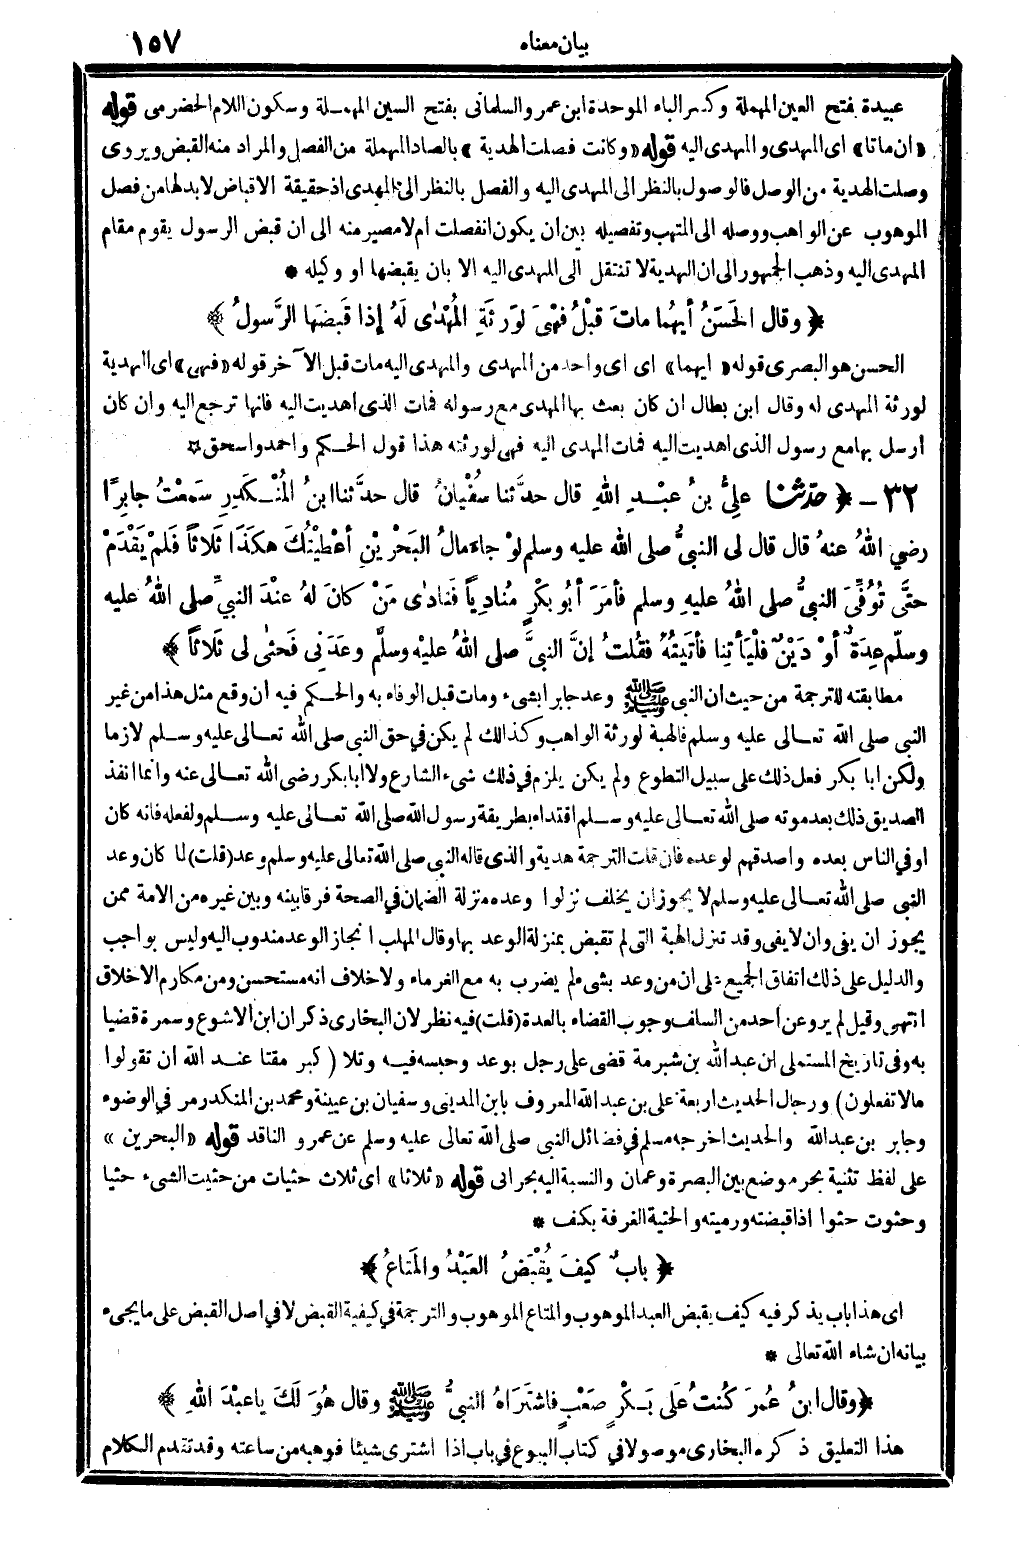 بيان معناه ١٥٧
عبيدة بفتح العين المهملة وكسر الباء الموحدة ابن عمر والسلمانى بفتح السين المهملة وسكون اللام الحضرمى قوله
«ان ماتا» اى المهدى والمهدى اليه قوله «وكانت فصلت الهدية» بالصاد المهملة من الفصل والمراد منه القبض ويروى
وصلت الهدية من الوصل فالوصول بالنظر الى المهدى اليه والفصل بالنظر الى المهدى اذ حقيقة الاقباض لا بد لها من فصل
الموهوب عن الواهب ووصله الى المتهب وتفصيله بين ان يكون انفصلت ام لا مصير منه الى ان قبض الرسول يقوم مقام
المهدى اليه وذهب الجمهور الى ان الهدية لا تنتقل الى المهدى اليه الا بان يقبضها او وكيله *
﴿ وقال الحَسَنُ أيهُما ماتَ قبْلُ فهْىَ لوَرثَةِ المُهْدٰى لَهُ إذا قَبَضَها الرَّسولُ ﴾
الحسن هو البصرى قوله «ايهما» اى اى واحد من المهدى والمهدى اليه مات قبل الآخر قوله «فهى» اى الهدية
لورثة المهدى له وقال ابن بطال ان كان بعث بها المهدى مع رسوله فمات الذى اهديت اليه فانها ترجع اليه وان كان
ارسل بها مع رسول الذى اهديت اليه فمات المهدى اليه فهى لورثته هذا قول الحكم واحمد واسحق *
٣٢ - ﴿ حدّثنا علِيُّ بنُ عبْدِ اللهِ قال حدَّثنا سُفْيانُ قال حدَّثنا ابنُ المُنْكَدِرِ سَمِعْتُ جابِرًا
رضي اللهُ عنهُ قال قال لى النبيُّ صلى الله عليه وسلم لوْ جاءَ مالُ البَحْرَيْنِ أعْطَيْتُكَ هكَذَا ثَلاثاً فَلَمْ يَقْدَمْ
حتَّى تُوُفِّىَ النبيُّ صلى اللهُ عليهِ وسلم فأمَرَ أبُو بكْرٍ مُنادِياً فَنادٰى مَنْ كانَ لهُ عنْدَ النبيِّ صلى اللهُ عليه
وسلّم عِدَةٌ أوْ دَيْنٌ فلْيَأتِنا فأتَيتُهُ فقُلتُ إنَّ النبيَّ صلى اللهُ عليْه وسلَّم وعَدَنِى فَحثٰى لى ثَلاثاً ﴾
مطابقته للترجمة من حيث ان النبى ﷺ وعد جابرا بشىء ومات قبل الوفاء به والحكم فيه ان وقع مثل هذا من غير
النبى صلى الله تعالى عليه وسلم فالهبة لورثة الواهب وكذلك لم يكن فى حق النبى صلى الله تعالى عليه وسلم لازما
ولكن ابا بكر فعل ذلك على سبيل التطوع ولم يكن يلزم فى ذلك شىء الشارع ولا ابا بكر رضى الله تعالى عنه وانما انفذ
الصديق ذلك بعد موته صلى الله تعالى عليه وسلم اقتداء بطريقة رسول الله صلى الله تعالى عليه وسلم ولفعله فانه كان
اوفى الناس بعده واصدقهم لوعده فان قلت الترجمة هدية والذى قاله النبى صلى الله تعالى عليه وسلم وعد (قلت) لما كان وعد
النبى صلى الله تعالى عليه وسلم لا يجوز ان يخلف نزلوا وعده منزلة الضمان فى الصحة فرقا بينه وبين غيره من الامة ممن
يجوز ان يفى وان لا يفى وقد تنزل الهبة التى لم تقبض بمنزلة الوعد بها وقال المهلب انجاز الوعد مندوب اليه وليس بواجب
والدليل على ذلك اتفاق الجميع على ان من وعد بشىء لم يضرب به مع الغرماء ولا خلاف انه مستحسن ومن مكارم الاخلاق
انتهى وقيل لم يرو عن احد من السلف وجوب القضاء بالعدة (قلت) فيه نظر لان البخارى ذكر ان ابن الاشوع وسمرة قضيا
به وفى تاريخ المستملى ابن عبد الله بن شبرمة قضى على رجل بوعد وحبسه فيه وتلا (كبر مقتا عند الله ان تقولوا
مالا تفعلون) ورجال الحديث اربعة على بن عبد الله المعروف بابن المدينى وسفيان بن عيينة ومحمد بن المنكدر مر فى الوضوء
وجابر بن عبد الله والحديث اخرجه مسلم فى فضائل النبى صلى الله تعالى عليه وسلم عن عمرو الناقد قوله «البحرين»
على لفظ تثنية بحر موضع بين البصرة وعمان والنسبة اليه بحرانى قوله «ثلاثا» اى ثلاث حثيات من حثيت الشىء حثيا
وحثوت حثوا اذا قبضته ورميته والحثية الغرفة بكف *
﴿ بابٌ كيفَ يُقْبَضُ العَبْدُ والمَتاعُ ﴾
اى هذا باب يذكر فيه كيف يقبض العبد الموهوب والمتاع الموهوب والترجمة فى كيفية القبض لا فى اصل القبض على ما يجىء
بيانه ان شاء الله تعالى *
﴿ وقال ابنُ عُمَرَ كُنتُ علَى بَكْرٍ صَعْبٍ فاشتَرَاهُ النبيُّ ﷺ وقال هُوَ لَكَ ياعبْدَ اللهِ ﴾
هذا التعليق ذكره البخارى موصولا فى كتاب البيوع فى باب اذا اشترى شيئا فوهبه من ساعته وقد تقدم الكلام